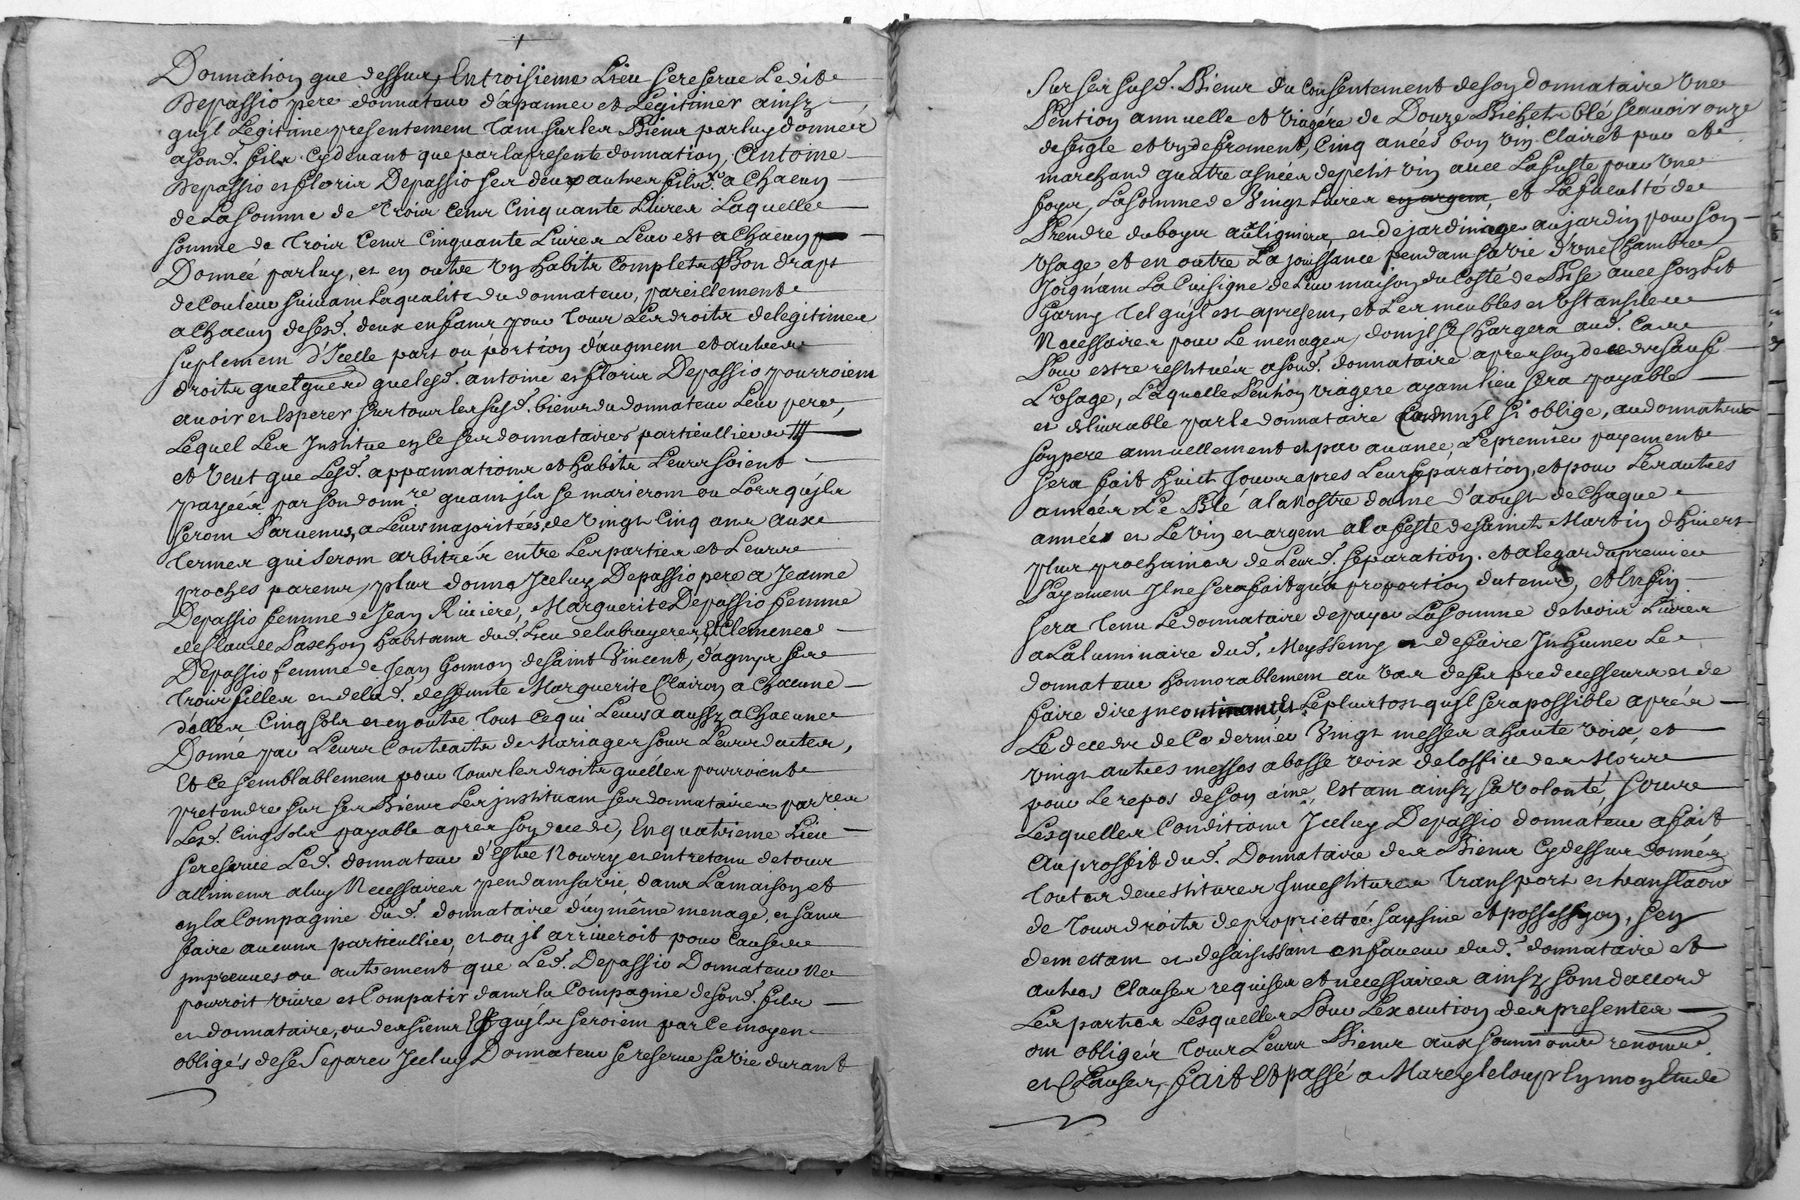 Donnation que dessus, Entroisieme Lieu sereserve Ledit
Depassio pere donnateur d'apanner et Legitimer ainsy
quil Legitime presentement tant surles Biens parluy donnés
asond. fils Cydevant que parlapresente donnation, Antoine
Depassio et floris Depassio ses deux autres fils a Chacun
de La somme de trois Cens Cinquante Livres Laquelle
somme de trois Cens Cinquante Livres Leur est a Chacun
Donnée parluy, et en outre un habits complets bon drapt
decouleur suivant Laqualité du donnateur, pareillement
a Chacun desesd. deux enfans pour tous Les droits delegitimes
suplement d'Icelle part ou portion d'augment et autres
droits quelquesd quelesd. antoine et floris Depassio pourroient
avoir et Esperer sur tous les susd. biens du donnateur Leur pere,
Lequel Les Institue en Ce ses donnataires particulliers
et veut que Lesd. appannations et habits Leurs soient
payées par son donnre quant jls se marieront ou Lors qu'jls
seront Parvenus, a Leurs majoritées de vingt Cinq ans aux
termes qui seront arbitrés entre Les parties et Leurs
proches parens, plus donne Jceluy Depassio pere a Jeanne
Depassio femme de Jean Riviere, Marguerite Depassio femme
de Claude Paschon habitans dud. Lieu de labruyeres et Clemence
Depassio femme de Jean Gomon de saint Vincent, d'agnys ses
trois filles et delad. deffunte Marguerite Clairon a Chacune
d'elles Cinq sols et en outre tout Ce qui Leurs a aussy a Chacune
Donné par Leurs Contracts de Mariages sous Leurs dactes,
Et Ce semblablement pour tous les droits quelles pourroient
pretendre sur ses Biens Les jnstituant ses donnataires parres
Lesd. Cinq sols payable apres son deces, En quatrieme Lieu
sereserve Led. donnateur d'Estre Nourry et entretenu de tous
allimens a luy Necessaires pendant sa vie, dans La maison et
en la Compagnie dud. donnataire d'un même menage, et sans
faire aucuns particullier, et ou jl arriveroit pour Causes
jmpreveues ou autrement que Led. Depassio Donnateur Ne
pourroit vivre et Compatir dans la Compagnie desond. fils
et donnataire, ou des siens Et quils seroient par ce moyen
obligés dese Separer Jceluy Donnateur se reserve sa vie durant
Sur ses susd. Biens du Consentement deson donnataire une
Pention annuelle et viagére de Douze Bichets blé sçavoir onze
de seigle et un de froment, Cinq anées bon vin Clairet pur et
marchand quatre asnées de petit vin avec La fuste pour une
foyer, La somme de Vingt Livres en argent, et La faculté de
Prendre du boyer au lignier et de jardinages au jardin pour son
usage et en outre La jouissance pendant sa vie d'une Chambre
Joignant La Cuisigne de Leur maison du Costé de Bise avec son Lit
Garny tel quil est a present, et Les meubles et Ustansiles
Necessaires pour Le menager, dont jl se Chargera aud. Cas
Pour estre restitués a sond. donnataire apres son deceds sauf
L'usage, Laquelle Pention viagere ayant lieu sera payable
et delivrable par le donnataire Comme jl si oblige, au donnateur
son pere annuellement et par avance, Le premier payement
sera fait huict Jours apres Leur separation, et pour Les autres
années Le Blé a la Nostre dame d'aoust de Chaque
année et Le vin et argent a la feste de saint Martin d'hivert
plus prochaines de Leurd. separation. et a legard du premier
Payement Jl ne sera fait qu'a proportion du tems, et Enfin
sera tenu Le donnataire de payer La somme de trois Livres
a La luminaire dud. Meyssemy et de faire Jnhumer Le
donnateur honnorablement au vas de ses predecesseurs et de
faire dire jncontinant Le plustost quil sera possible aprés
Le deceds de Ce dernier Vingt messes a haute voix, et
vingt autres messes a basse voix de L'office des Morts
pour Le repos de son ame, Estant ainsy sa volonté, sous
Lesquelles Conditions Jceluy Depassio donnateur a fait
au proffit dud. Donnataire des Biens Cydessus donnés
toutes devestitures Jnvestitures transport et translation
de tous droits de proprietté saysine et possession, s'en
demettant et desaisissant en faveur dud. donnataire et
autres Clauses requises et necessaires ainsy sont d'accord
Les parties Lesquelles Pour L'execution des presentes
ont obligés tous Leurs Biens aux soumissions renonces
et Clauses, fait et passé a Marcy leloup En mon Etude